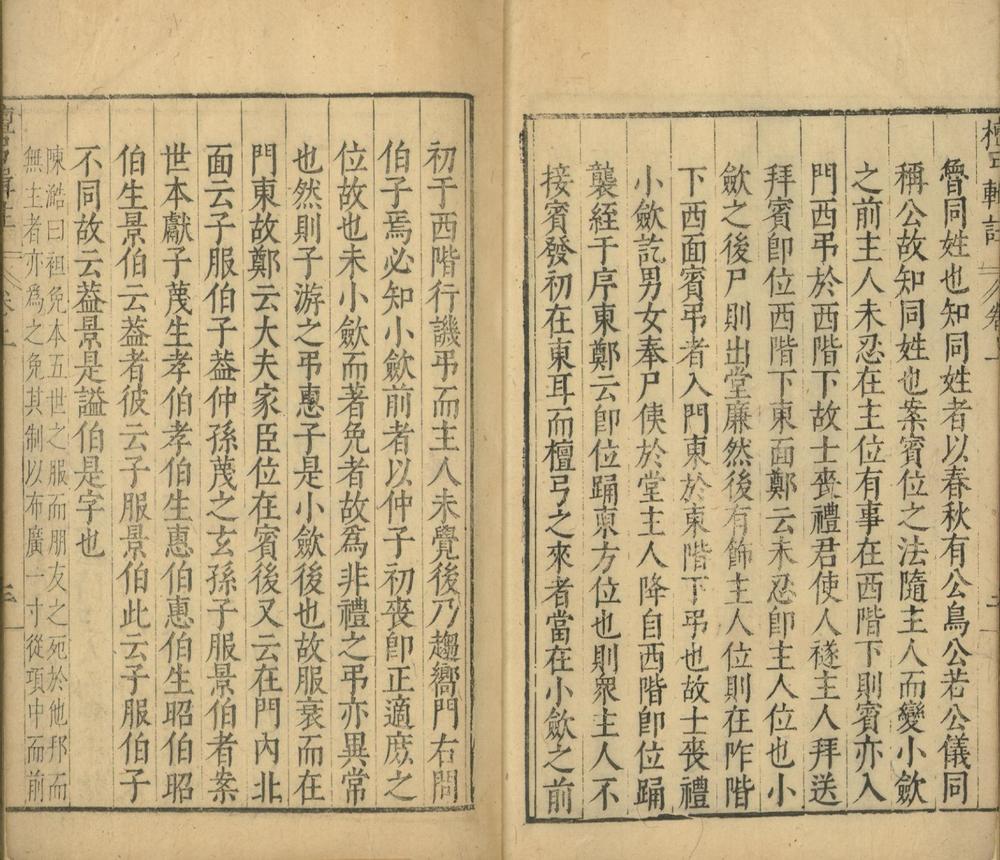 檀弓輯註 卷上
魯同姓也知同姓者以春秋有公鳥公若公儀同
稱公故知同姓也案賓位之法隨主人而變小斂
之前主人未忍在主位有事在西階下則賓亦入
門西弔於西階下故士喪禮君使人襚主人拜送
拜賓卽位西階下東面鄭云未忍卽主人位也小
斂之後尸則出堂廉然後有飾主人位則在阼階
下西面賓弔者入門東於東階下弔也故士喪禮
小斂訖男女奉尸侇於堂主人降自西階卽位踊
襲絰于序東鄭云卽位踊東方位也則衆主人不
接賓發初在東耳而檀弓之來者當在小斂之前
初于西階行譏弔而主人未覺後乃趨嚮門右問
伯子焉必知小斂前者以仲子初喪卽正適庶之
位故也未小斂而著免者故爲非禮之弔亦異常
也然則子游之弔惠子是小斂後也故服衰而在
門東故鄭云大夫家臣位在賓後又云在門內北
面云子服伯子葢仲孫蔑之玄孫子服景伯者案
世本獻子蔑生孝伯孝伯生惠伯惠伯生昭伯昭
伯生景伯云葢者彼云子服景伯此云子服伯子
不同故云葢景是謚伯是字也
陳澔曰袒免本五世之服而朋友之死於他邦而
無主者亦爲之免其制以布廣一寸從項中而前